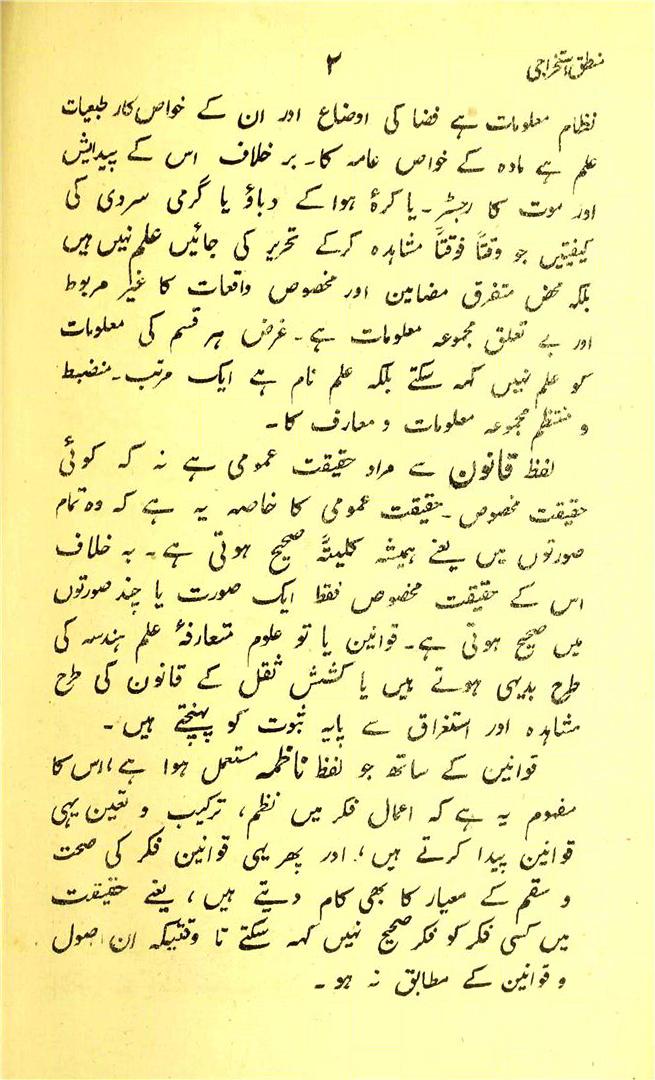 منطق استخراجی ۲
نظام معلومات ہے فضا کی اوضاع اور ان کے خواص کا، طبعیات
علم ہے مادہ کے خواص عامہ کا۔ برخلاف اس کے پیدایش
اور موت کا رجسٹر۔ یا کرۂ ہوا کے دباؤ یا گرمی سردی کی
کیفیتیں جو وقتاً فوقتاً مشاہدہ کرکے تحریر کی جائیں علم نہیں ہیں
بلکہ محض متفرق مضامین اور مخصوص واقعات کا غیر مربوط
اور بے تعلق مجموعہ معلومات ہے۔ غرض ہر قسم کی معلومات
کو علم نہیں کہہ سکتے بلکہ علم نام ہے ایک مرتب۔ منضبط
و منتظم مجموعہ معلومات و معارف کا۔
لفظ قانون سے مراد حقیقت عمومی ہے نہ کہ کوئی
حقیقت مخصوص۔ حقیقت عمومی کا خاصہ یہ ہے کہ وہ تمام
صورتوں میں یعنے ہمیشہ کلیتہً صحیح ہوتی ہے۔ بہ خلاف
اس کے حقیقت مخصوص فقط ایک صورت یا چند صورتوں
میں صحیح ہوتی ہے۔ قوانین یا تو علوم متعارفۂ علم ہندسہ کی
طرح بدیہی ہوتے ہیں یا کشش ثقل کے قانون کی طرح
مشاہدہ اور استغراق سے پایہ ثبوت کو پہنچتے ہیں۔
قوانین کے ساتھ جو لفظ ناظمہ مستعمل ہوا ہے، اس کا
مفہوم یہ ہے کہ اعمال فکر میں نظم، ترکیب و تعین یہی
قوانین پیدا کرتے ہیں، اور پھر یہی قوانین فکر کی صحت
و سقم کے معیار کا بھی کام دیتے ہیں، یعنے حقیقت
میں کسی فکر کو فکر صحیح نہیں کہہ سکتے تا وقتیکہ ان اصول
و قوانین کے مطابق نہ ہو۔